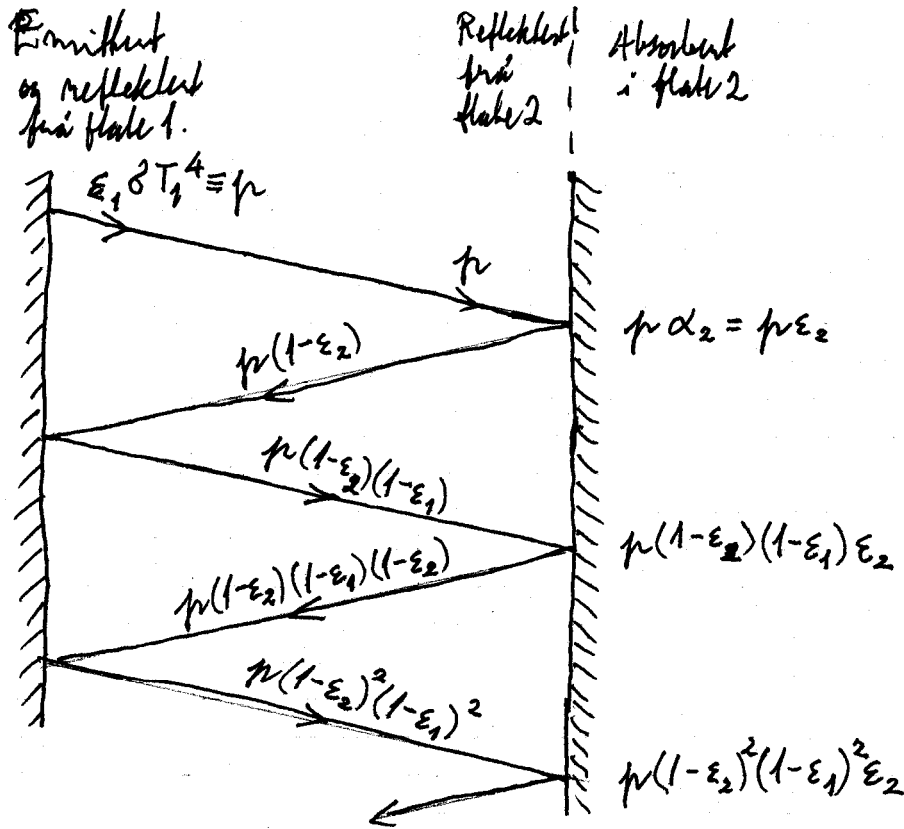 Emittert
og reflektert
frå flate 1.
Reflektert
frå
flate 2
Absorbert
i flate 2
ε₁σT₁⁴ ≡ p
p
p α₂ = p ε₂
p(1-ε₂)
p(1-ε₂)(1-ε₁)
p(1-ε₂)(1-ε₁)ε₂
p(1-ε₂)(1-ε₁)(1-ε₂)
p(1-ε₂)²(1-ε₁)²
p(1-ε₂)²(1-ε₁)²ε₂